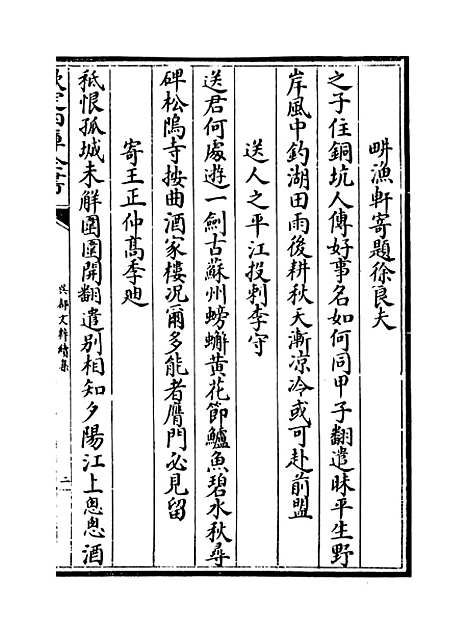 畊漁軒寄題徐良夫
之子住銅坑人傳好事名如何同甲子翻遣昧平生野
岸風中釣湖田雨後耕秋天漸凉冷或可赴前盟
送人之平江投刺李守
送君何處逰一劍古蘇州螃蠏黄花節鱸魚碧水秋尋
碑松隝寺按曲酒家樓况爾多能者膺門必見留
寄王正仲髙季廸
秪恨孤城未解圍圍開翻遣别相知夕陽江上悤悤酒
欽定四庫全書
吳都文粹續集
二